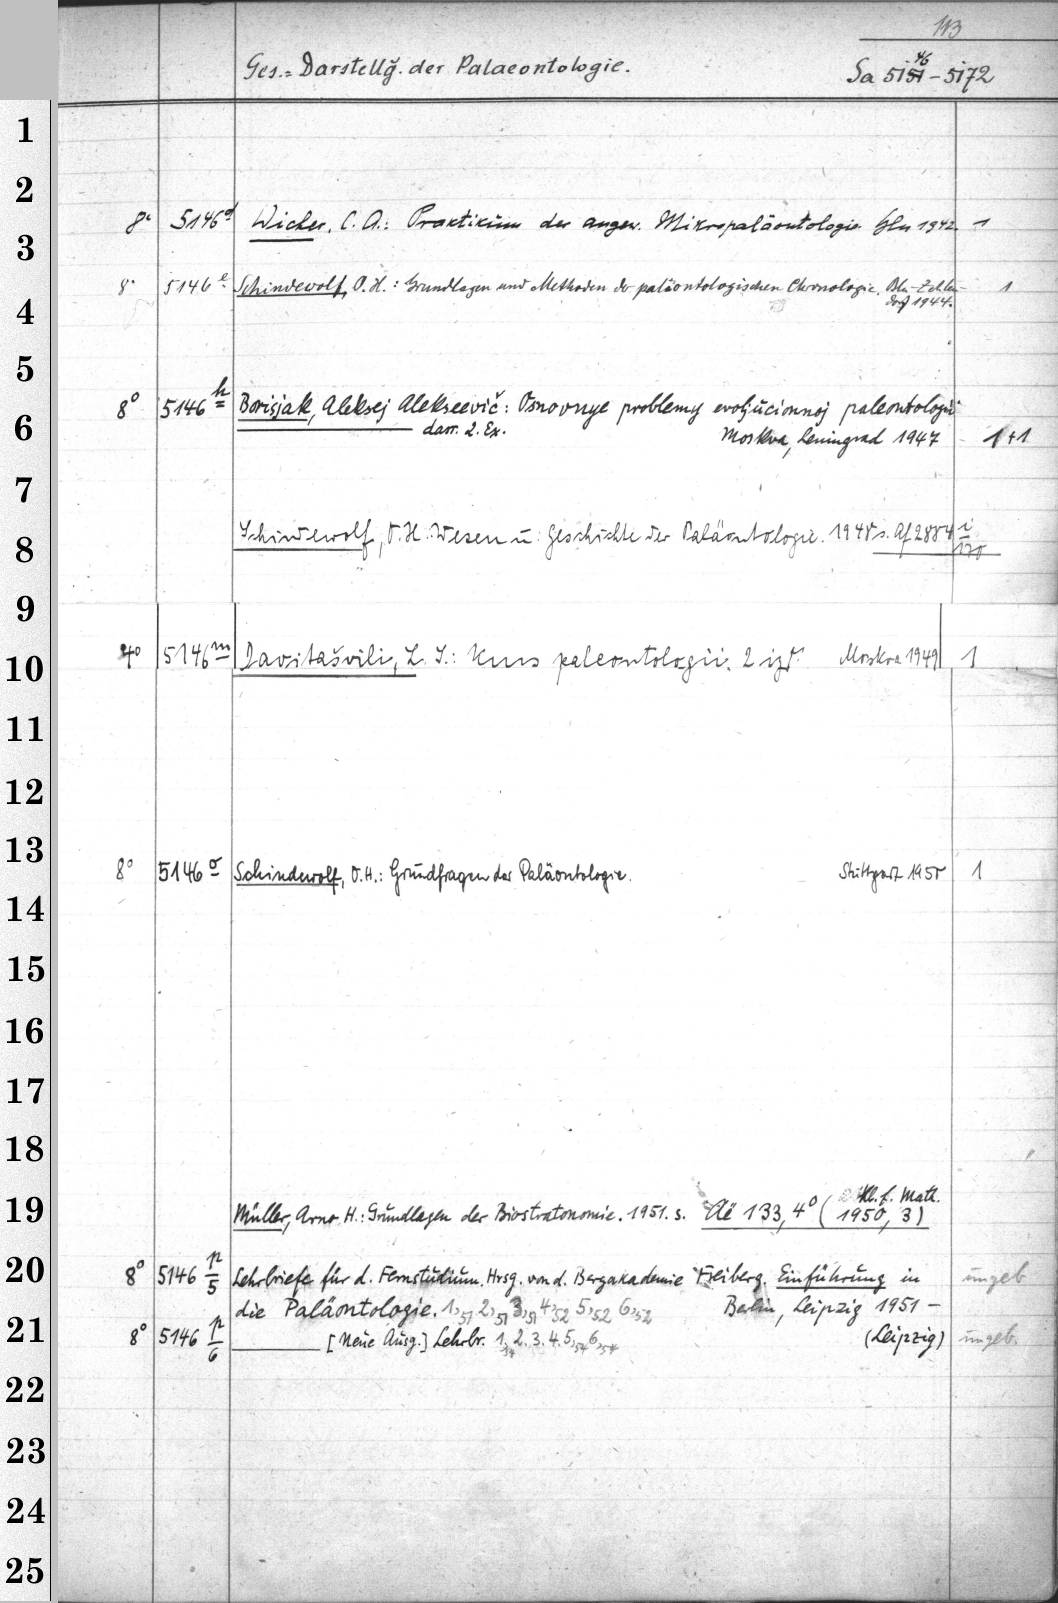 113
Ges.= Darstellg. der Palaeontologie. Sa 5151 46 - 5172
1
2
8° 5146 d Wicher, C. A.: Praktikum der angew. Mikropaläontologie. Bln 1942. 1
3
8° 5146 e Schindewolf, O. H.: Grundlagen und Methoden der paläontologischen Chronologie. Bln-Zehlen- 1
dorf 1944.
4
5
8° 5146 h Borisjak, Aleksej Alekseevič: Osnovnye problemy evoljucionnoj paleontologii
6
darr. 2. Ex. Moskva, Leningrad 1947 1+1
7
Schindewolf, O. H.: Wesen u. Geschichte der Paläontologie. 1948 s. Af 2884 i/170
8
9
4° 5146 m Davitašvili, L. Š.: Kurs paleontologii. 2 izd. Moskva 1949 1
10
11
12
13
8° 5146 o Schindewolf, O. H.: Grundfragen der Paläontologie. Stuttgart 1950 1
14
15
16
17
18
Kl. f. Math.
19
Müller, Arno H.: Grundlagen der Biostratonomie. 1951. s. Aë 133, 4° (1950, 3)
20
8° 5146 p/5 Lehrbriefe für d. Fernstudium. Hrsg. von d. Bergakademie Freiberg. Einführung in ungeb
die Paläontologie. 1,51 2,51 3,51 4,52 5,52 6,52 Berlin, Leipzig 1951 -
21
8° 5146 p/6 ——— [Neue Ausg.] Lehrbr. 1,54 2. 3. 4. 5,54 6,54 (Leipzig) ungeb.
22
23
24
25